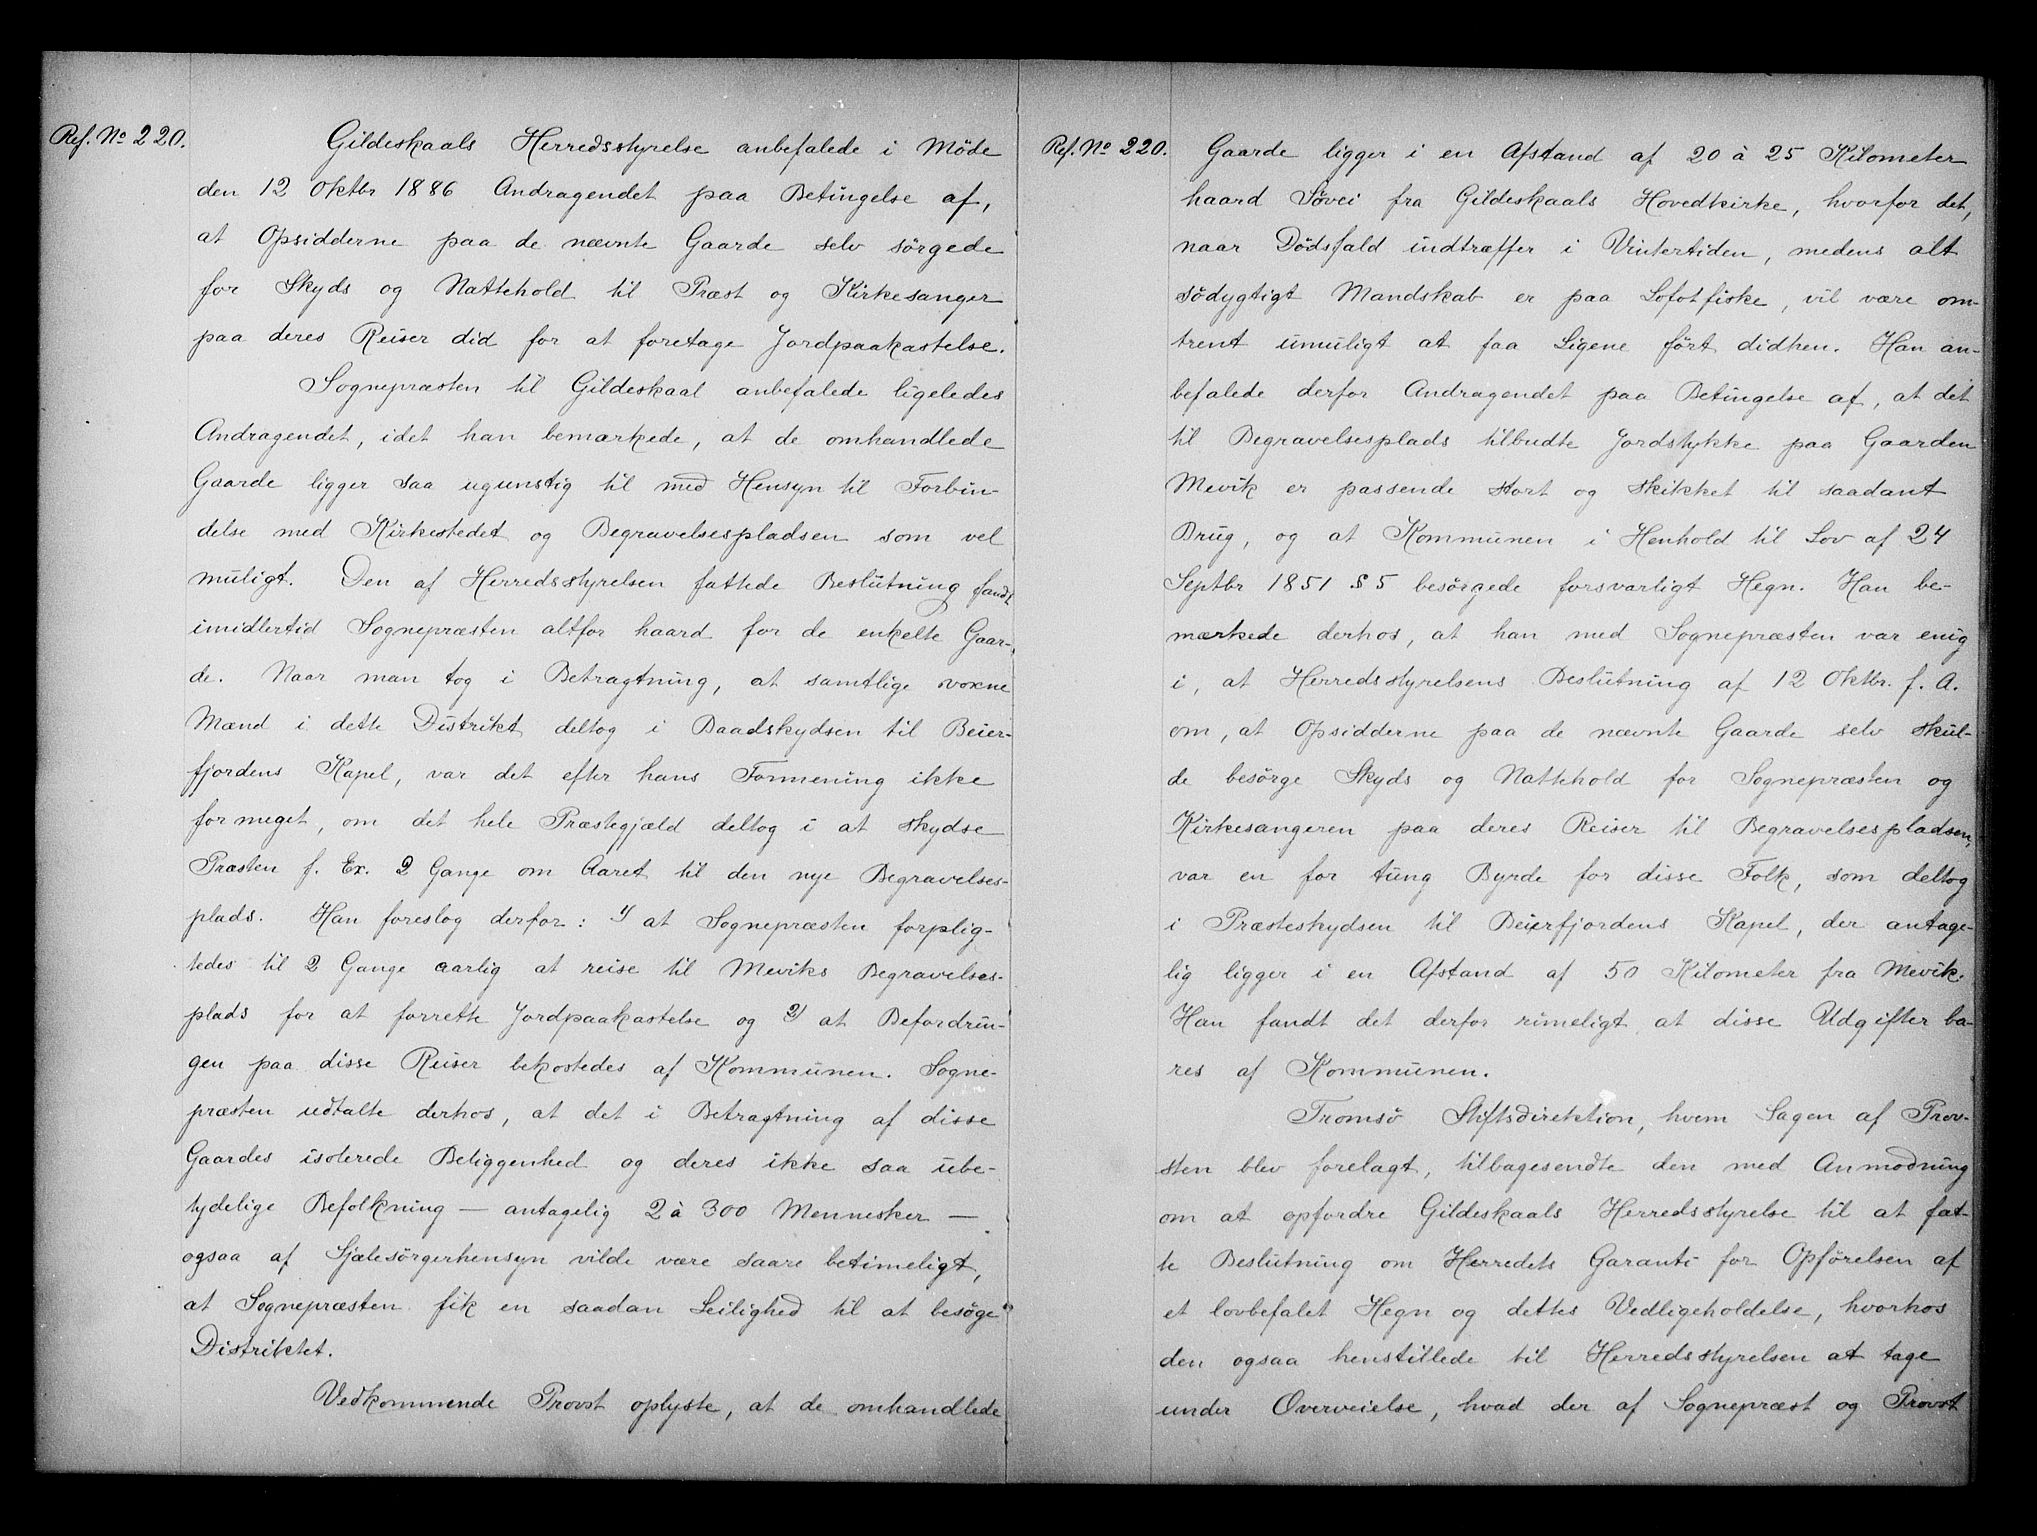 Ref. No 220.
Gildeskaals Herredsstyrelse anbefalede i Møde
den 12 Oktbr 1886 Andragendet paa Betingelse af,
at Opsidderne paa de nævnte Gaarde selv sörgede
for Skyds og Nattehold til Præst og Kirkesanger
paa deres Reiser did for at foretage Jordpaakastelse.
Sognepræsten til Gildeskaal anbefalede ligeledes
Andragendet, idet han bemærkede, at de omhandlede
Gaarde ligger saa ugunstig til med Hensyn til Forbin-
delse med Kirkestedet og Begravelsespladsen som vel
muligt. Den af Herredsstyrelsen fattede Beslutning fandt
imidlertid Sognepræsten altfor haard for de enkelte Gaar-
de. Naar man tog i Betragtning, at samtlige voxne
Mænd i dette Distrikt deltog i Baadskydsen til Beier-
fjordens Kapel, var det efter hans Formening ikke
formeget, om det hele Præstegjæld deltog i at skydse
Præsten f. Ex. 2 Gange om Aaret til den nye Begravelses-
plads. Han foreslog derfor: 1) at Sognepræsten forplig-
tedes til 2 Gange aarlig at reise til Meviks Begravelses-
plads for at forrette Jordpaakastelse og 2) at Befordrin-
gen paa disse Reiser bekostedes af Kommunen. Sogne-
præsten udtalte derhos, at det i Betragtning af disse
Gaardes isolerede Beliggenhed og deres ikke saa ube-
tydelige Befolkning — antagelig 2 à 300 Mennesker —
ogsaa af Sjælesörgerhensyn vilde være saare betimeligt,
at Sognepræsten fik en saadan Leilighed til at besöge
Distriktet.
Vedkommende Provst oplyste, at de omhandlede
Ref. No 220.
Gaarde ligger i en Afstand af 20 à 25 Kilometer
haard Søvei fra Gildeskaals Hovedkirke, hvorfor det,
naar Dödsfald indtræffer i Vintertiden, medens alt
södygtigt Mandskab er paa Lofotfiske, vil være om-
trent umuligt at faa Ligene fört didhen. Han an-
befalede derfor Andragendet paa Betingelse af, at det
til Begravelsesplads tilbudte Jordstykke paa Gaarden
Mevik er passende stort og skikket til saadant
Brug, og at Kommunen i Henhold til Lov af 24
Septbr 1851 § 5 besörgede forsvarligt Hegn. Han be-
mærkede derhos, at han med Sognepræsten var enig
i, at Herredsstyrelsens Beslutning af 12 Oktbr. f. A.
om, at Opsidderne paa de nævnte Gaarde selv skul-
de besörge Skyds og Nattehold for Sognepræsten og
Kirkesangeren paa deres Reiser til Begravelsespladsen,
var en for tung Byrde for disse Folk, som deltog
i Præsteskydsen til Beierfjordens Kapel, der antage-
lig ligger i en Afstand af 50 Kilometer fra Mevik.
Han fandt det derfor rimeligt at disse Udgifter ba-
res af Kommunen.
Tromsö Stiftsdirektion, hvem Sagen af Prov-
sten blev forelagt, tilbagesendte den med Anmodning
om at opfordre Gildeskaals Herredsstyrelse til at fat-
te Beslutning om Herredets Garanti for Opförelsen af
et lovbefalet Hegn og dettes Vedligeholdelse, hvorhos
den ogsaa henstillede til Herredsstyrelsen at tage
under Overveielse, hvad der af Sognepræst og Provst